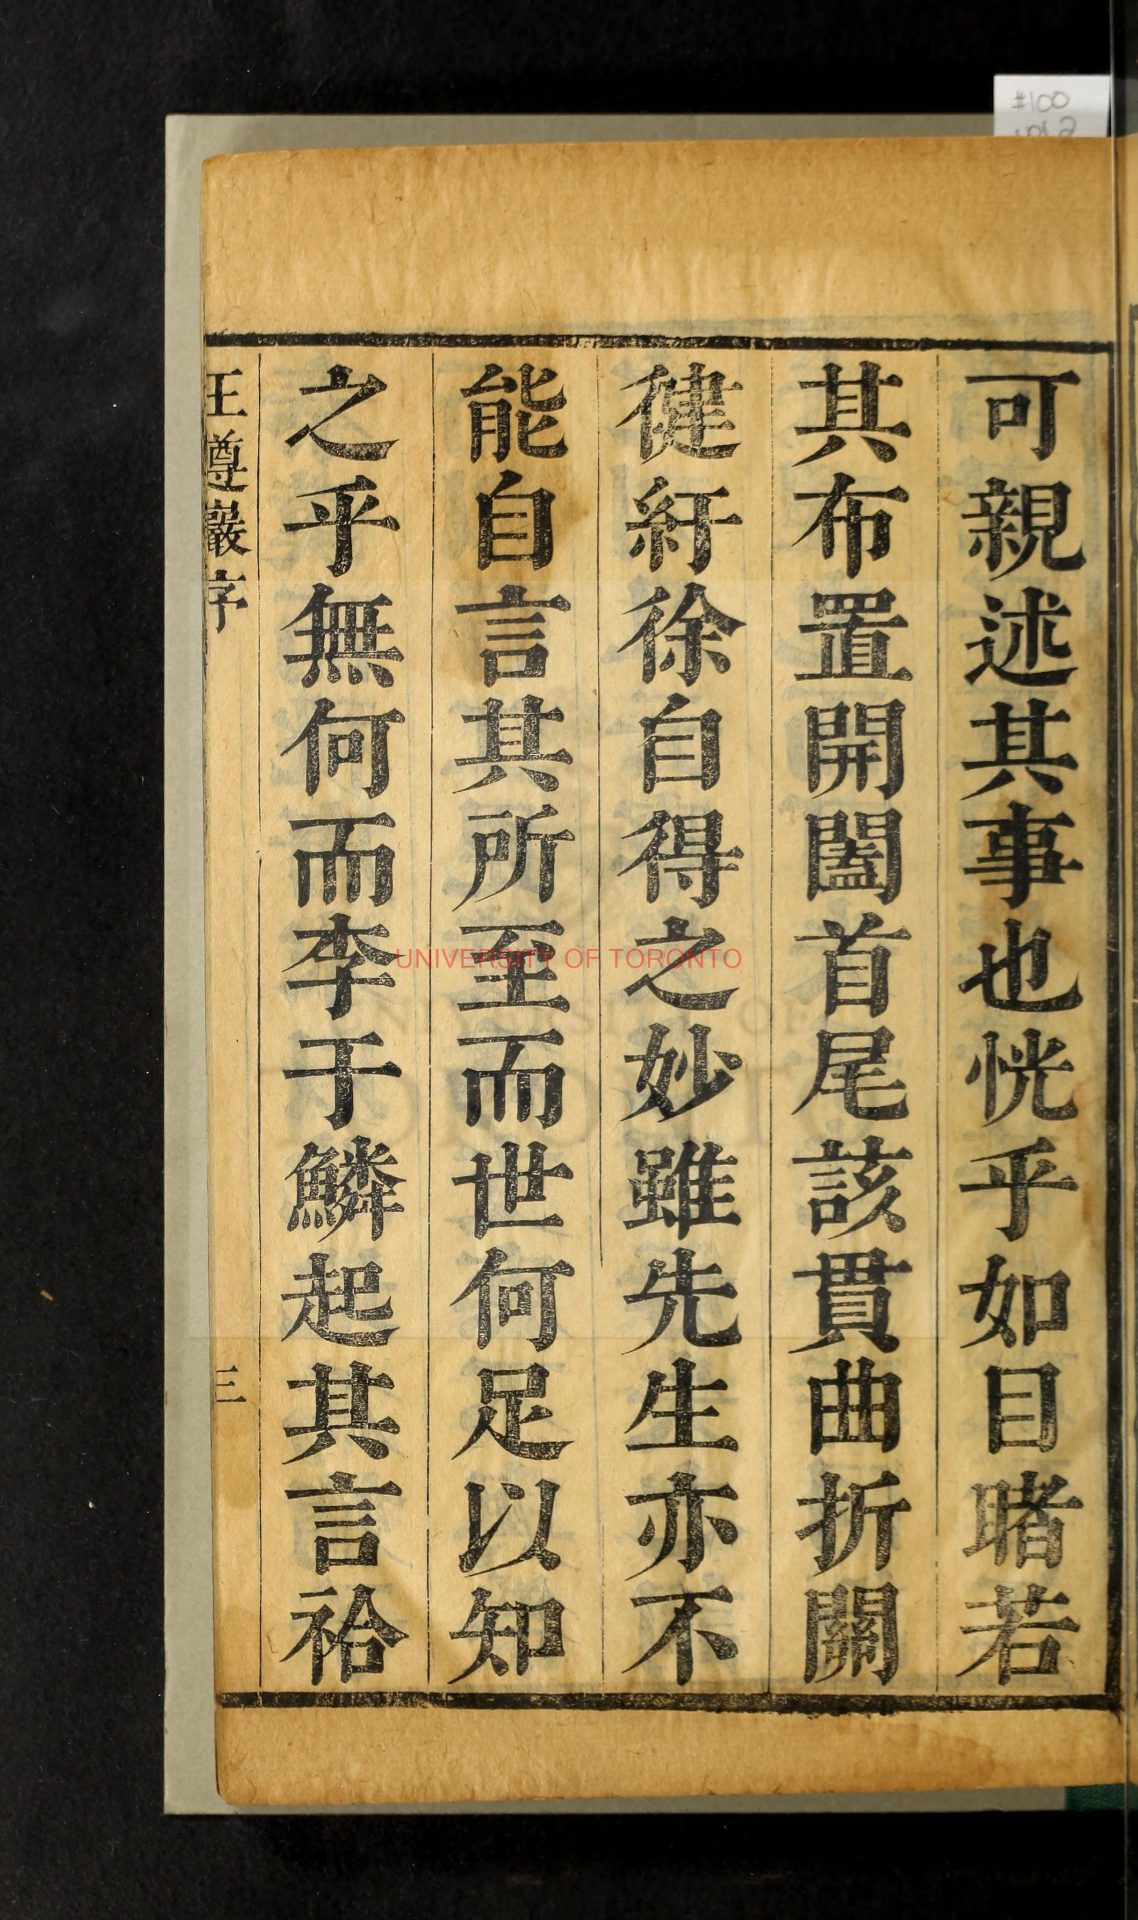 可親述其事也恍乎如目睹若
其布置開闔首尾該貫曲折關
徤紆徐自得之妙雖先生亦不
能自言其所至而世何足以知
之乎無何而李于鱗起其言祫
王遵巖序
三
#100
UNIVERSITY OF TORONTO